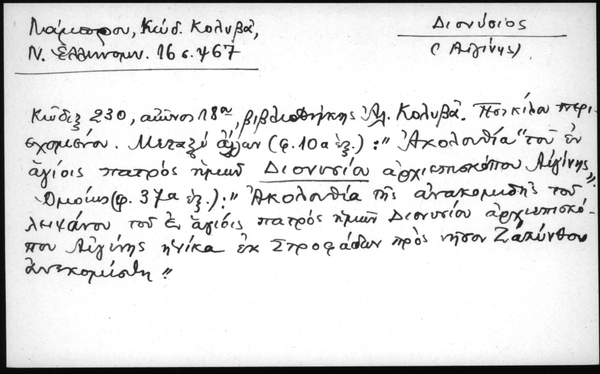 Λάμπρου, Κώδ. Κολυβᾶ,
Ν. Ἑλληνομν. 16 σ. 467
Διονύσιος
(Αἰγίνης)
Κῶδιξ 230, αἰῶνος 18ου, βιβλιοθήκης Ἀλ. Κολυβᾶ. Ποικίλα περι-
εχομένου. Μεταξὺ ἄλλων (φ. 10α ἑξ.): "Ἀκολουθία τοῦ ἐν
ἁγίοις πατρὸς ἡμῶν Διονυσίου ἀρχιεπισκόπου Αἰγίνης".
Ὁμοίως (φ. 37α ἑξ.): "Ἀκολουθία τῆς ἀνακομιδῆς τοῦ
λειψάνου τοῦ ἐν ἁγίοις πατρὸς ἡμῶν Διονυσίου ἀρχιεπισκό-
που Αἰγίνης ἡνίκα ἐκ Στροφάδων πρὸς νῆσον Ζάκυνθον
ἀνεκομίσθη".